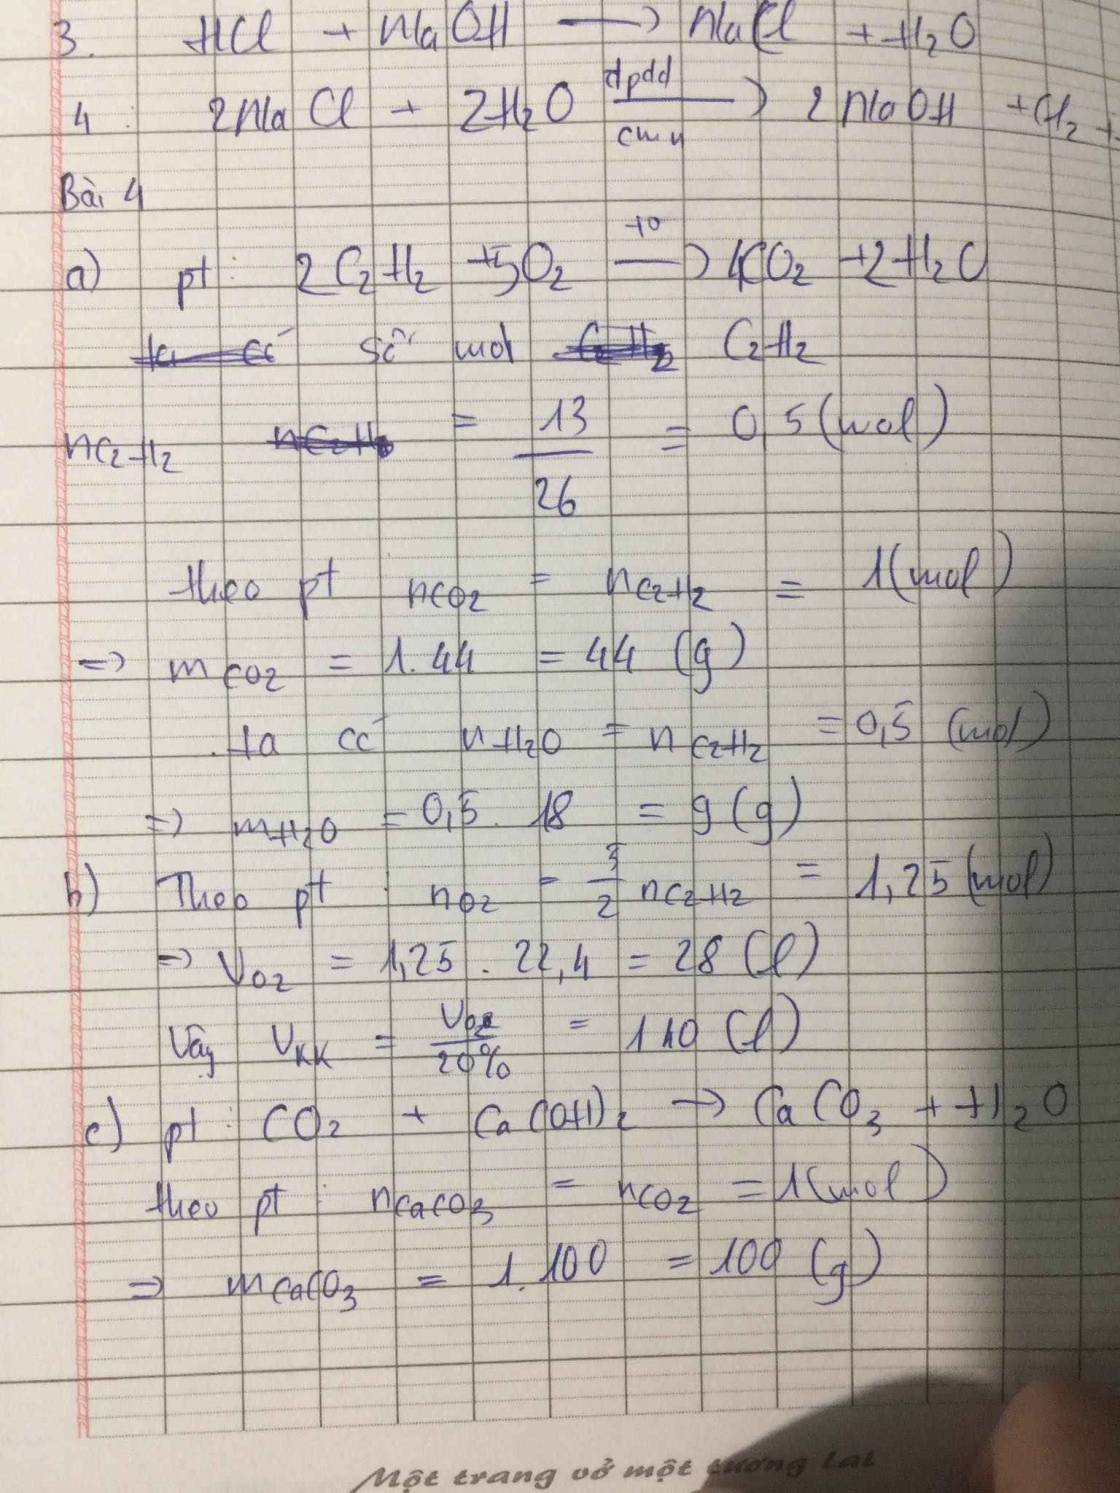 3. HCl + NaOH → NaCl + H₂O
4: 2NaCl + 2H₂O đpdd → cmn 2NaOH + Cl₂ +
Bài 4
a) pt: 2C₂H₂ + 5O₂ →ᵗᵒ 4CO₂ + 2H₂O
số mol C₂H₂
nC₂H₂ = 13/26 = 0,5 (mol)
theo pt nCO₂ = nC₂H₂ = 1 (mol)
=> mCO₂ = 1.44 = 44 (g)
ta có nH₂O = nC₂H₂ = 0,5 (mol)
=> mH₂O = 0,5. 18 = 9 (g)
b) Theo pt: nO₂ = 5/2 nC₂H₂ = 1,25 (mol)
=> VO₂ = 1,25 . 22,4 = 28 (l)
Vậy VKK = VO₂/20% = 140 (l)
c) pt: CO₂ + Ca(OH)₂ → CaCO₃ + H₂O
theo pt: nCaCO₃ = nCO₂ = 1 (mol)
=> mCaCO₃ = 1.100 = 100 (g)
Một trang vở một tương lai